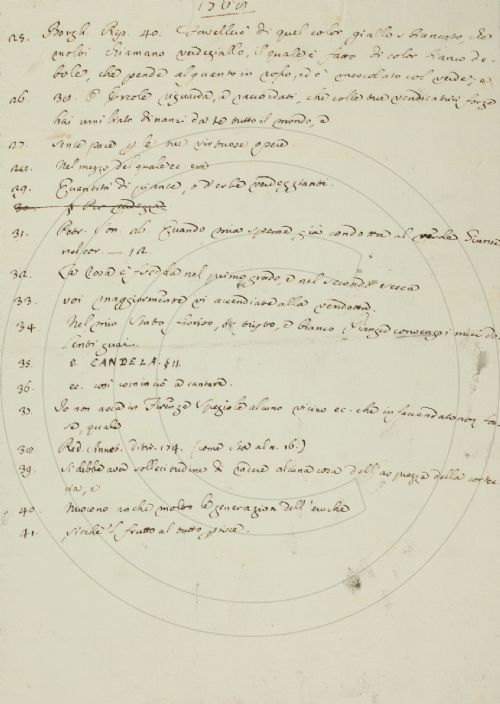 25. Borgh. Rip. 40. Gavellin di quel color giallo sbiancato, che
molti chiamano verdegiallo, il quale è fatto di color bianco de-
bole, che pende alquanto in rosso, ed è mescolato col verde, e
26. 30. O Ercole riguarda, e ravveditti, che colle tue vendicatrici forze
hai umiliato dinanzi da te tutto il mondo, e
27. pace le tue virtuose opere
28. Nel mezzo del quale ec. era
29. Quantità di piante, o d'erbe verdeggianti.
30.
31. Petr. Son. 26. Quando mia speme già condotta al verde Giunse
nel cor. — 12.
32. La rosa è fredda nel primo grado, e nel secondo secca
33. voi maggiormente vi accendiate alla vendetta
34. Nel mio stato fiorito, e bianco Piange i miei do-
lenti guai.
35. e CANDELA. § 11.
36. ec. così cominciò a cantare.
37. Io non avea in Firenze speziale alcuno vicino ec. che infaccendato non fos-
se, quale
38. Red. Annot. Ditir. 174. (come sta al n. 16.)
39. Si debbe aver sollecitudine di radere alcuna cosa dell'asprezza della cortec-
cia, e
40. Nuocono anche molto le generazion dell'eruche
41. Sicchè 'l frutto al tutto pisce.